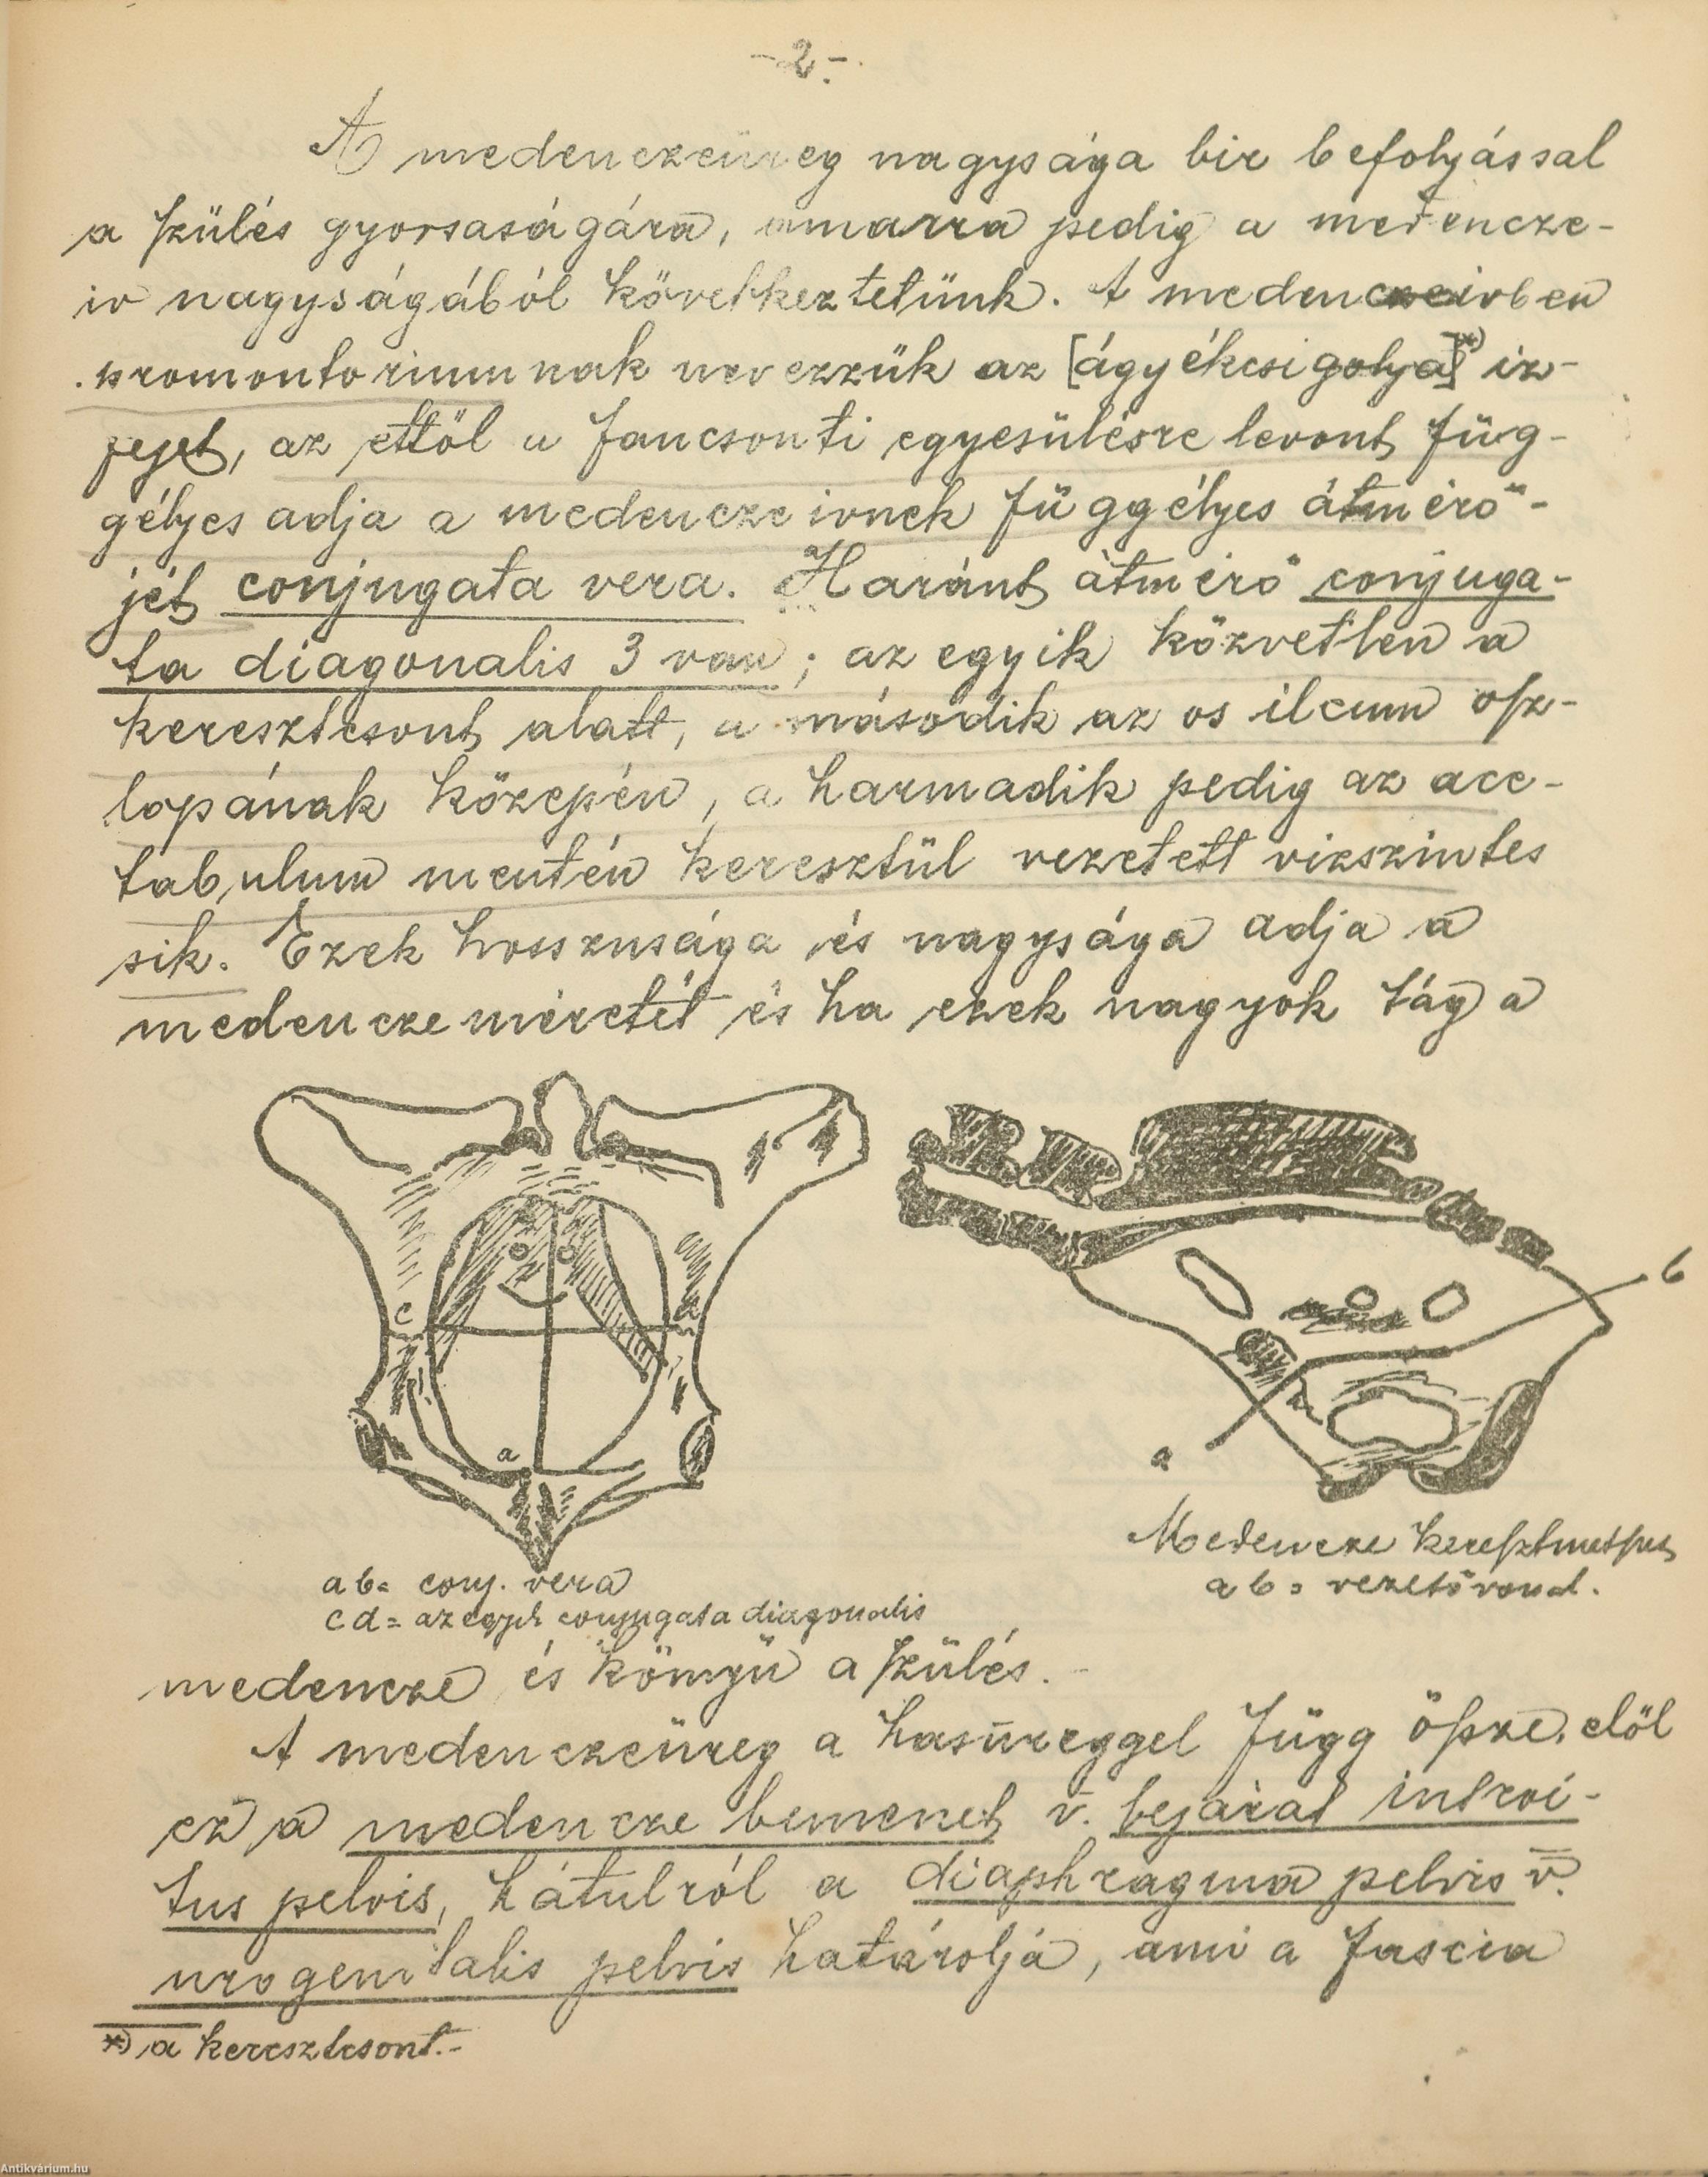 -2-
A medenczeüreg nagysága bir befolyással
a szülés gyorsaságára, amarra pedig a medencze-
iv nagyságából következtetünk. A medenczeivben
promontoriumnak nevezzük az [ágyékcsigolya]*) iz-
fejet, az ettöl a fancsonti egyesülésre levont füg-
gélyes adja a medenczeivnek függélyes átmérő-
jét conjugata vera. Haránt átmérő conjuga-
ta diagonalis 3 van; az egyik közvetlen a
keresztcsont alatt, a második az os ileum osz-
lopának közepén, a harmadik pedig az ace-
tabulum mentén keresztül vezetett vizszintes
sik. Ezek hosszusága és nagysága adja a
medencze méretét és ha ezek nagyok tág a
c
d
a
b
a
ab= conj. vera
cd= az egyik conjugata diagonalis
Medencze keresztmetszet
ab= vezetővonal.
medencze és könnyü a szülés.-
A medenczeüreg a hasüreggel függ össze, elöl
ez a medencze bemenet v. bejárat introi-
tus pelvis, hátulról a diaphragma pelvis v.
urogenitalis pelvis határolja, ami a fascia
*) a keresztcsont.-
Antikvárium.hu